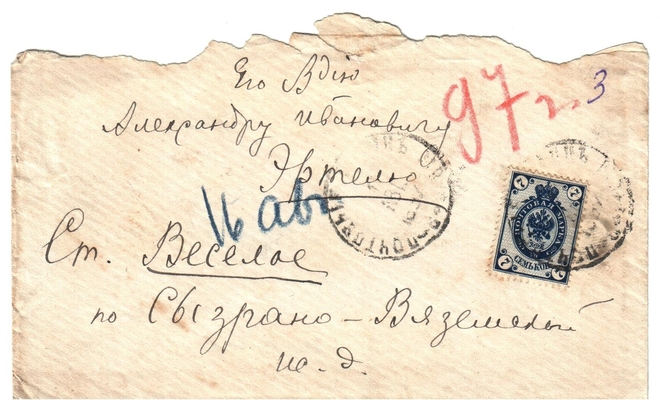 Его Вдію
Александру Ивановичу
Эртелю
97 г.
3
16 авг
Ст. Веселое
по Сызрано-Вяземской
ж. д.
7 7
ПОЧТОВАЯ МАРКА
СЕМЬ КОП.
7 7